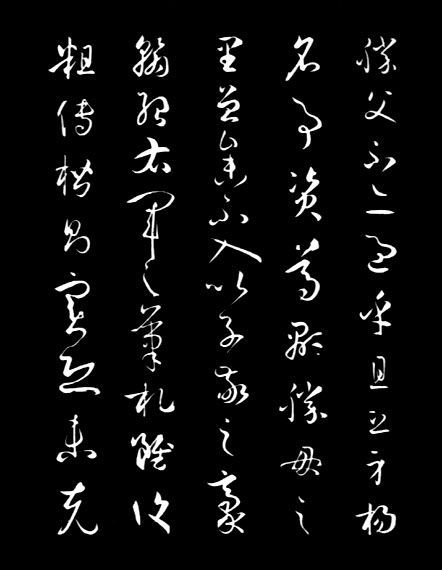 勝父不亦過乎且立身揚
名事資尊顯勝母之
里曾參不入以子敬之豪
翰紹右軍之筆札雖復
粗傳楷則實恐未克